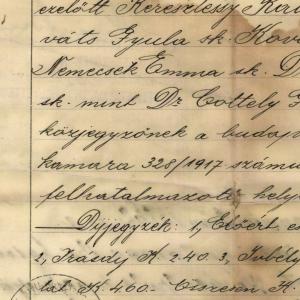 előtt Keresztessy Kar
váts Gyula sk. Kov
Nemecsek Emma sk. D
sk. mint Dr Cottely G
közjegyzőnek a budap
kamara 328/1917 számu
felhatalmazott hely
Díjjegyzék: 1, Előért e
2, Irásdíj K 2.40. 3, Ivbély
lat K 4.60. Összesen K